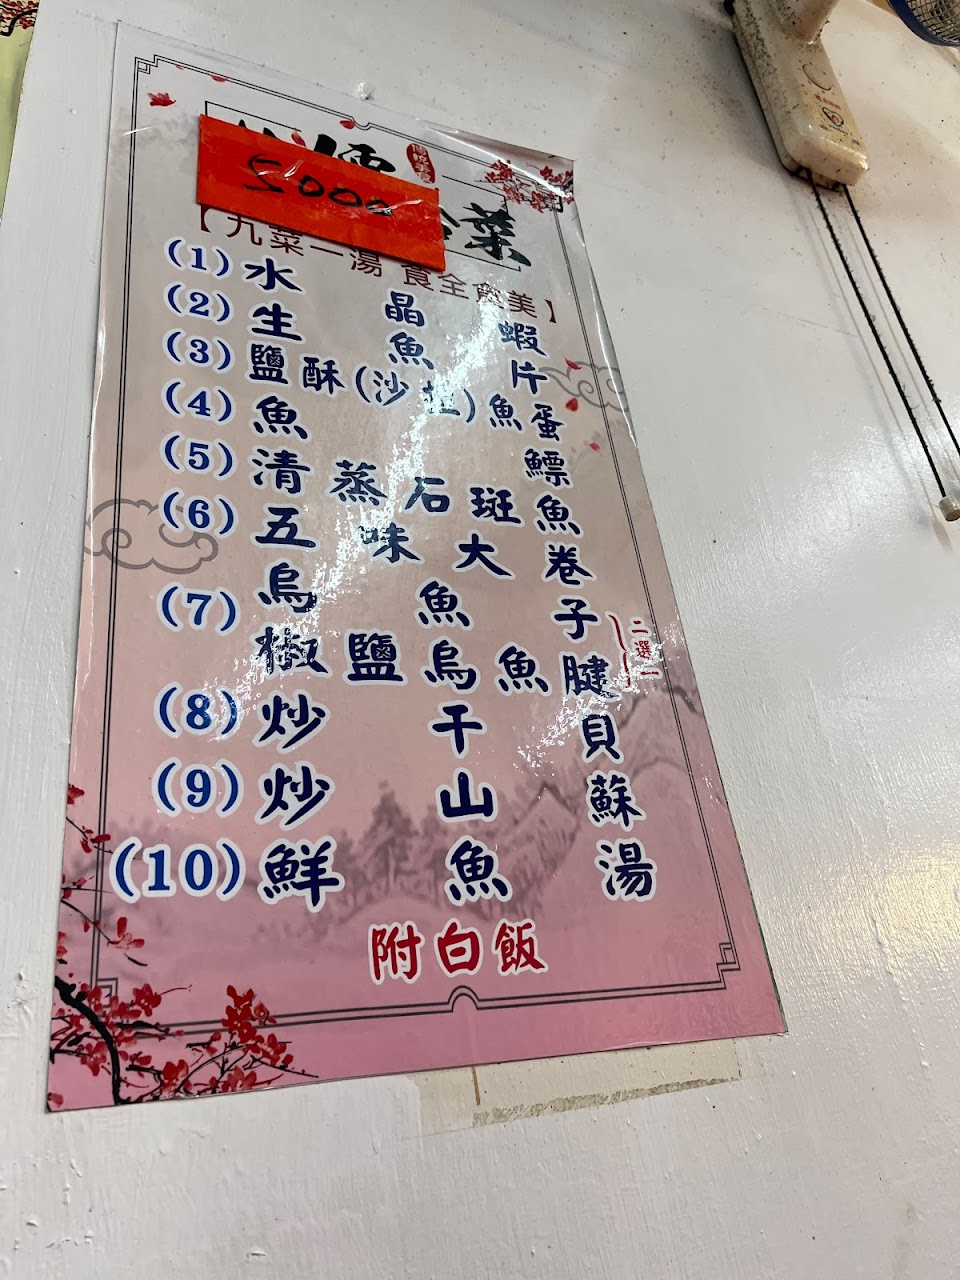 5000
菜
【九菜一湯 食全飲美】
(1) 水晶蝦
(2) 生魚片
(3) 鹽酥(沙拉)魚蛋
(4) 魚鰾
(5) 清蒸石斑魚
(6) 五味大卷
(7) 烏魚子
椒鹽烏魚腱
二選一
(8) 炒干貝
(9) 炒山蘇
(10) 鮮魚湯
附白飯